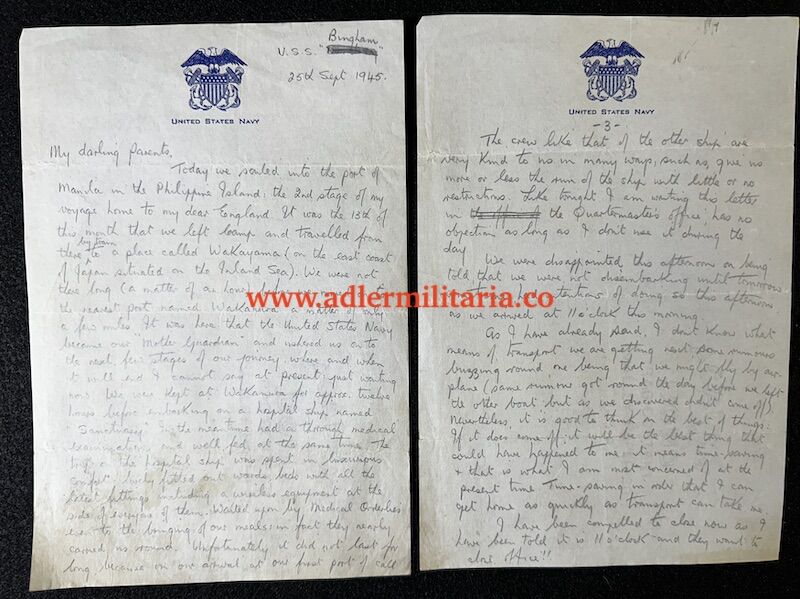 Bingham
U.S.S. "        "
25th Sept 1945.
UNITED STATES NAVY
My darling Parents,
Today we sailed into the port of
Manila in the Philippine Island: the 2nd stage of my
voyage home to my dear England. It was the 13th of
this month that we left camp and travelled from
by train
there to a place called Wakayama (on the east coast
of Japan situated on the Inland Sea). We were not
there long (a matter of an hour)
the nearest port named Wakanura a matter of only
a few miles. It was here that the United States Navy
became our "Mother Guardian" and ushered us on to
the next few stages of our journey, where and when
it will end I cannot say at present, just waiting
now. We was kept at Wakanura for approx. twelve
hours before embarking on a hospital ship named
"Sanctuary" In the mean time had a through medical
examination and well fed at the same time. The
trip on the hospital ship was spent in luxurious
comfort. Lovely fitted out wards, beds with all the
latest fittings including a wireless equipment at the
side of everyone of them. Waited upon by Medical Orderlies
even to the bringing of our meals in fact they nearly
carried us around. Unfortunately it did not last for
long because on our arrival at our first port of call
UNITED STATES NAVY
-3-
The crew like that of the other ship are
very kind to us in many ways, such as, give us
more or less the run of the ship with little or no
restrictions. Like tonight I am writing this letter
in the Quartermaster's office has no
objection as long as I don't use it during the
day.
We were disappointed this afternoon on being
told that we were not disembarking until tomorrow
intentions of doing so this afternoon
as we arrived at 11 o'clock this morning.
As I have already said, I don't know what
means of transport we are getting next some rumours
buzzing round one being that we might fly by air-
plane (same rumour got round the day before we left
the other boat but as we discovered didn't come off).
Nevertheless, it is good to think on the best of things.
If it does come off it will be the best thing that
could have happened to me it means time-saving
+ that is what I am most concerned of at the
present time Time-saving in order that I can
get home as quickly as transport can take me.
I have been compelled to close now as I
have been told it is 11 o'clock and they want to
close office!!
www.adlermilitaria.co